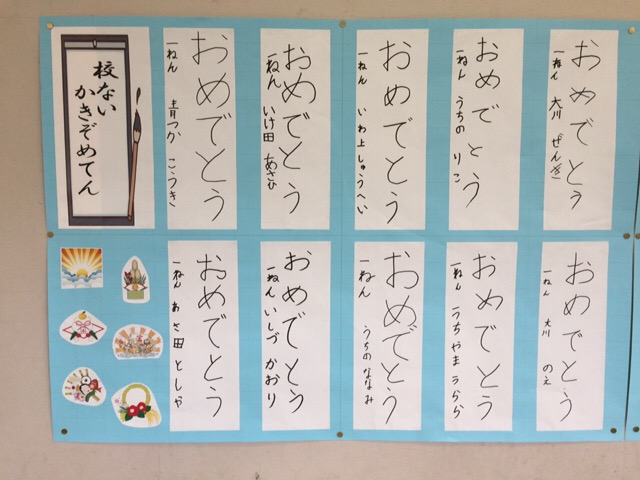 校ない
かきぞめてん
おめでとう
一ねん 青つか こうき
おめでとう
一ねん いけ田 あさひ
おめでとう
一ねん いわ上 しゅうへい
おめでとう
一ねん うちの りこ
おめでとう
一ねん 大川
おめでとう
一ねん あさ田 としや
おめでとう
一ねん いしづ かおり
おめでとう
一ねん うちの ななみ
おめでとう
一ねん うちやま うらら
おめでとう
一ねん 大川 のえ